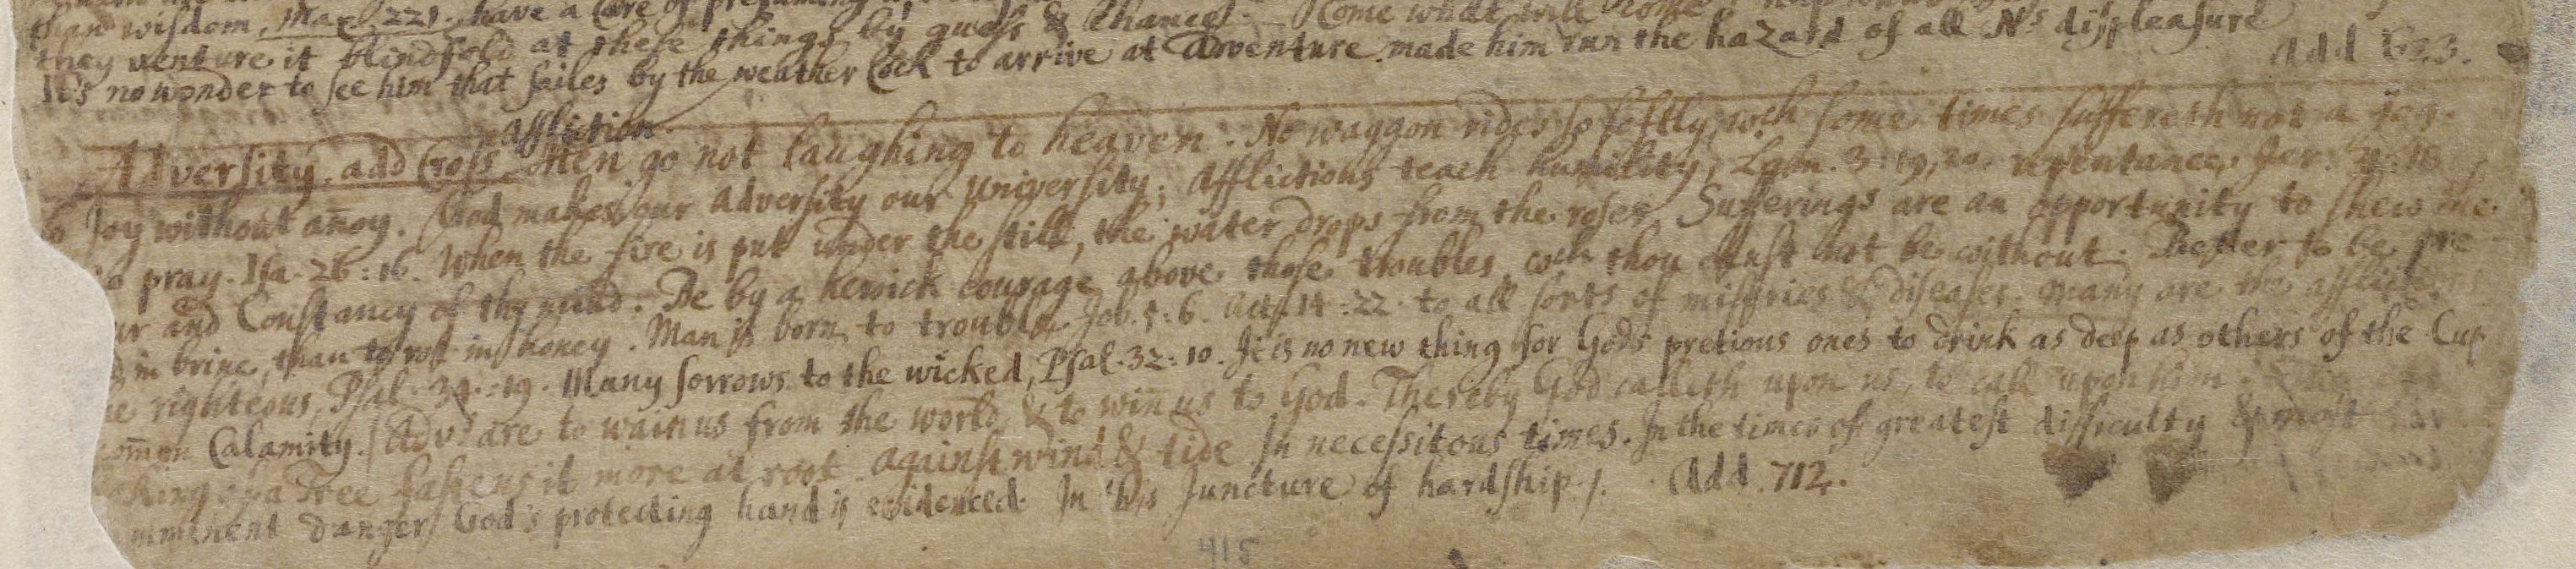 than wisdom, have a care of
they venture it blindfold at these things by guess & chance. Come what will
It's no wonder to see him that sailes by the weather Cock to arrive at adventure. made him run the hazard of all N's displeasure
Add 623.
affliction.
Adversity. add Cross. Men go not laughing to heaven. No waggon rides so softly, wch some times suffereth not a jog.
Joy without añoy. God makes our adversity our University; Afflictions teach humility, Lam. 3:19,20. repentance, Jer. 31:18
pray. Isa. 26:16. When the fire is put under the still, the water drops from the roses. Sufferings are an opportunity to shew the
and Constancy of thy mind. Be by a heroick courage above those troubles, wch thou canst not be without. Better to be pre
in brine, than to rot in honey. Man is born to trouble Job. 5:6. Act. 14:22. to all sorts of miseries & diseases. Many are the afflictions
righteous, Psal. 34:19. Many sorrows to the wicked, Psal. 32:10. It is no new thing for God's pretious ones to drink as deep as others of the Cup
com̄on Calamity. Adv: are to wain us from the world, & to win us to God. Thereby God calleth upon us, to call upon him.
of a Tree fastens it more at root. against wind & tide In necessitous times. In the times of greatest difficulty & most
imminent danger God's protecting hand is evidenced. In this Juncture of hardship. Add. 712.
415